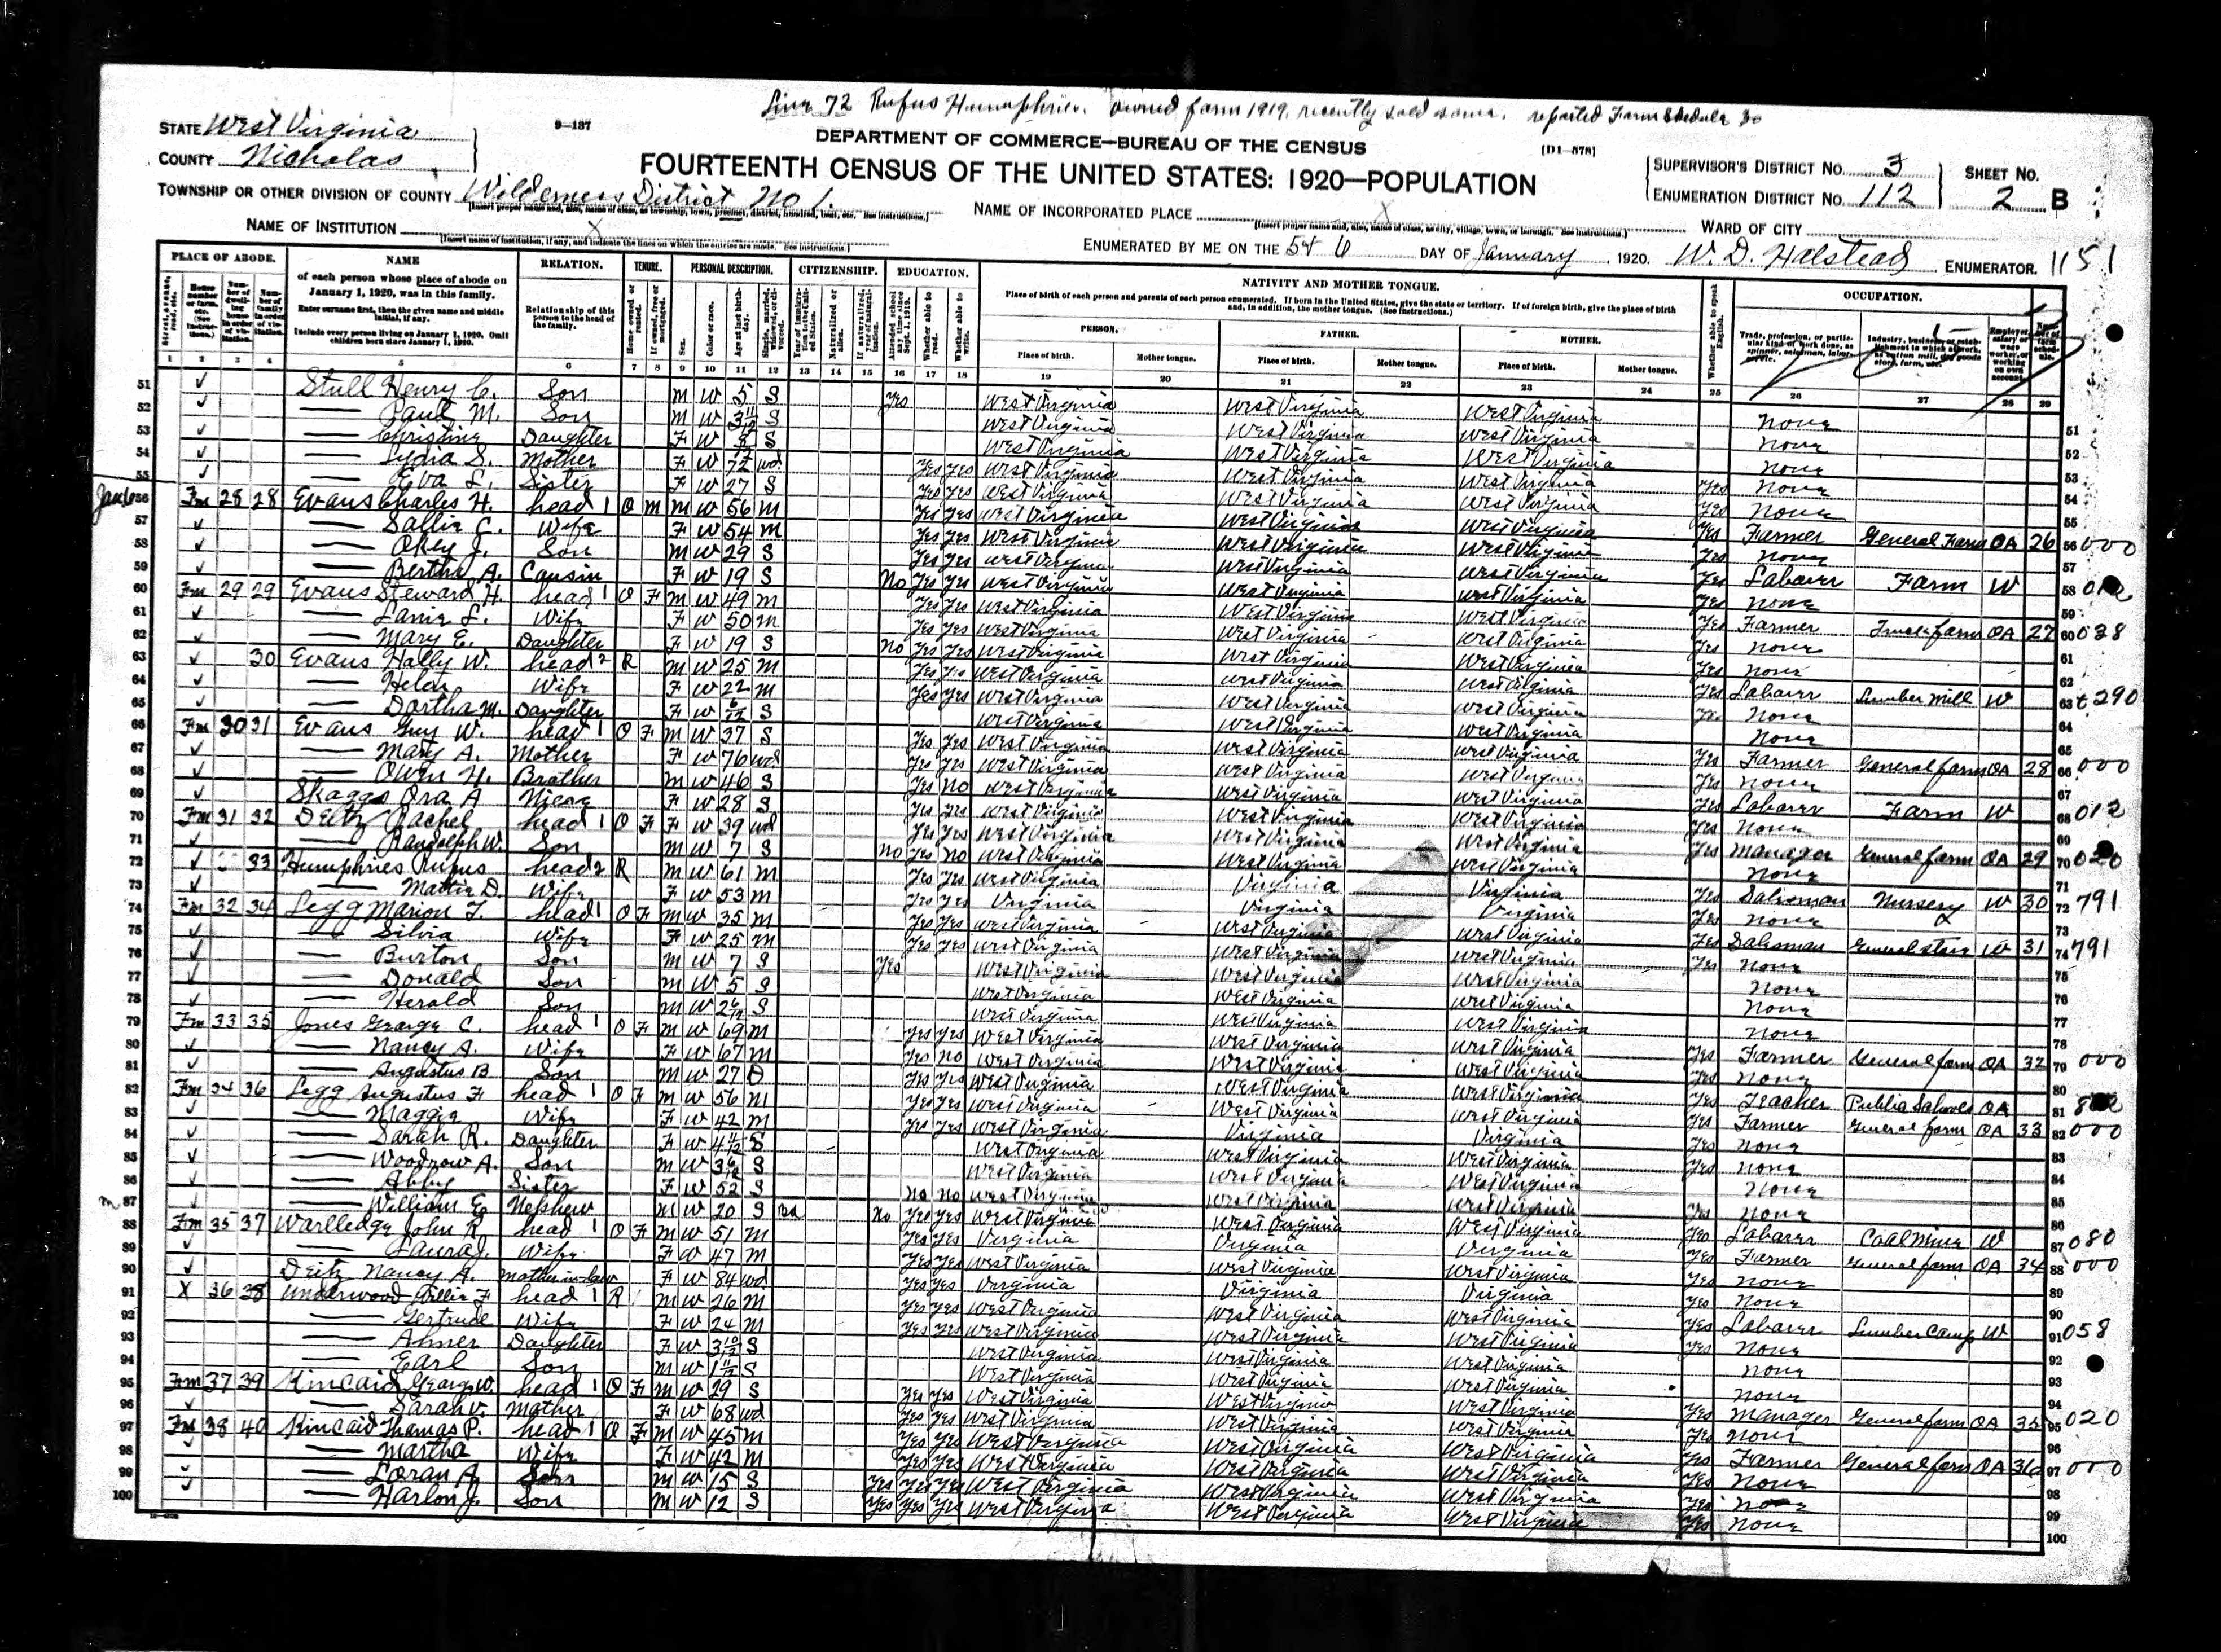 Line 72 Rufus Humphries. owned farm 1919, recently sold same. reported Farm Schedule 30
STATE West Virginia
COUNTY Nicholas
9-137
DEPARTMENT OF COMMERCE—BUREAU OF THE CENSUS
[D1-578]
FOURTEENTH CENSUS OF THE UNITED STATES: 1920—POPULATION
SUPERVISOR'S DISTRICT NO. 3
ENUMERATION DISTRICT NO. 112
SHEET NO. 2 B
TOWNSHIP OR OTHER DIVISION OF COUNTY Wilderness District No 1.
NAME OF INCORPORATED PLACE X
NAME OF INSTITUTION X
WARD OF CITY
ENUMERATED BY ME ON THE 5 & 6 DAY OF January, 1920. W. D. Halstead ENUMERATOR. 1151
PLACE OF ABODE. NAME RELATION. TENURE. PERSONAL DESCRIPTION. CITIZENSHIP. EDUCATION. NATIVITY AND MOTHER TONGUE. OCCUPATION.
of each person whose place of abode on January 1, 1920, was in this family.
Enter surname first, then the given name and middle initial, if any.
Include every person living on January 1, 1920. Omit children born since January 1, 1920.
Relationship of this person to the head of the family.
Place of birth of each person and parents of each person enumerated. If born in the United States, give the state or territory. If of foreign birth, give the place of birth and, in addition, the mother tongue. (See Instructions.)
PERSON. FATHER. MOTHER.
Place of birth. Mother tongue. Place of birth. Mother tongue. Place of birth. Mother tongue.
1 2 3 4 5 6 7 8 9 10 11 12 13 14 15 16 17 18 19 20 21 22 23 24 25 26 27 28 29
51 Stull Henry C. Son M W 5 S Yes West Virginia West Virginia West Virginia None
52 — Paul M. Son M W 3 11/12 S West Virginia West Virginia West Virginia None
53 — Christine Daughter F W S West Virginia West Virginia West Virginia None
54 — Lydia S. Mother F W 72 wd Yes Yes West Virginia West Virginia West Virginia Yes None
55 — Eva L. Sister F W 27 S Yes Yes West Virginia West Virginia West Virginia Yes None
56 Fm 28 28 Evans Charles H. head 1 O M M W 56 M Yes Yes West Virginia West Virginia West Virginia Yes Farmer General Farm OA 26 000
57 — Sallie C. Wife F W 54 M Yes Yes West Virginia West Virginia West Virginia Yes None
58 — Okey J. Son M W 29 S Yes Yes West Virginia West Virginia West Virginia Yes Laborer Farm W
59 — Bertha A. Cousin F W 19 S No Yes Yes West Virginia West Virginia West Virginia Yes None
60 Fm 29 29 Evans Steward H. head 1 O F M W 49 M Yes Yes West Virginia West Virginia West Virginia Yes Farmer Truck farm OA 27 038
61 — L. Wife F W 50 M Yes Yes West Virginia West Virginia West Virginia Yes None
62 — Mary E. Daughter F W 19 S No Yes Yes West Virginia West Virginia West Virginia Yes None
63 30 Evans Hally W. head 2 R M W 25 M Yes Yes West Virginia West Virginia West Virginia Yes Laborer Lumber Mill W 290
64 — Helen Wife F W 22 M Yes Yes West Virginia West Virginia West Virginia Yes None
65 — Dortha M. Daughter F W 6/12 S West Virginia West Virginia West Virginia None
66 Fm 30 31 Evans Guy W. head 1 O F M W 37 S Yes Yes West Virginia West Virginia West Virginia Yes Farmer General farm OA 28 000
67 — Mary A. Mother F W 76 wd Yes Yes West Virginia West Virginia West Virginia Yes None
68 — Owen H. Brother M W 46 S Yes No West Virginia West Virginia West Virginia Yes Laborer Farm W 012
69 Skaggs Ora A Niece F W 28 S Yes Yes West Virginia West Virginia West Virginia Yes None
70 Fm 31 32 Deitz Rachel head 1 O F F W 39 wd Yes Yes West Virginia West Virginia West Virginia Yes Manager General farm OA 29 020
71 — Randolph W. Son M W 7 S No Yes No West Virginia West Virginia West Virginia None
72 33 Humphries Rufus head 2 R M W 61 M Yes Yes West Virginia Virginia Virginia Yes Salesman Nursery W 30 791
73 — Mattie D. Wife F W 53 M Yes Yes Virginia Virginia Virginia Yes None
74 Fm 32 34 Legg Marion F. head 1 O F M W 35 M Yes Yes West Virginia West Virginia West Virginia Yes Salesman General store W 31 791
75 — Silvia Wife F W 25 M Yes Yes West Virginia West Virginia West Virginia Yes None
76 — Burton Son M W 7 S Yes West Virginia West Virginia West Virginia None
77 — Donald Son M W 5 S West Virginia West Virginia West Virginia None
78 — Herald Son M W 2 6/12 S West Virginia West Virginia West Virginia None
79 Fm 33 35 Jones George C. head 1 O F M W 69 M Yes Yes West Virginia West Virginia West Virginia Yes Farmer General farm OA 32 000
80 — Nancy A. Wife F W 67 M Yes No West Virginia West Virginia West Virginia Yes None
81 — Augustus B Son M W 27 D Yes Yes West Virginia West Virginia West Virginia Yes Teacher Public Schools OA
82 Fm 34 36 Legg Augustus F head 1 O F M W 56 M Yes Yes West Virginia West Virginia West Virginia Yes Farmer General farm OA 33 000
83 — Maggie Wife F W 42 M Yes Yes West Virginia Virginia Virginia Yes None
84 — Sarah R. Daughter F W 4 11/12 S West Virginia West Virginia West Virginia Yes None
85 — Woodrow A. Son M W 3 6/12 S West Virginia West Virginia West Virginia None
86 — Abby Sister F W 52 S No No West Virginia West Virginia West Virginia Yes None
87 — William E. Nephew M W 20 S No Yes Yes West Virginia West Virginia West Virginia Yes Laborer Coal Mine W 080
88 Fm 35 37 Warlledge John R head 1 O F M W 51 M Yes Yes Virginia Virginia Virginia Yes Farmer General farm OA 34 000
89 — Laura J. Wife F W 47 M Yes Yes West Virginia West Virginia West Virginia Yes None
90 Deitz Nancy A. Mother-in-law F W 84 wd Yes Yes Virginia Virginia Virginia Yes None
91 X 36 38 Underwood Willie F head 1 R M W 26 M Yes Yes West Virginia West Virginia West Virginia Yes Laborer Lumber Camp W 058
92 — Gertrude Wife F W 24 M Yes Yes West Virginia West Virginia West Virginia Yes None
93 — Daughter F W 3 10/12 S West Virginia West Virginia West Virginia None
94 — Earl Son M W 1 11/12 S West Virginia West Virginia West Virginia None
95 Fm 37 39 Kincaid George W. head 1 O F M W 29 S Yes Yes West Virginia West Virginia West Virginia Yes Manager General farm OA 35 020
96 — Sarah V. Mother F W 68 wd Yes Yes West Virginia West Virginia West Virginia Yes None
97 Fm 38 40 Kincaid Thomas P. head 1 O F M W 45 M Yes Yes West Virginia West Virginia West Virginia Yes Farmer General farm OA 36 000
98 — Martha Wife F W 42 M Yes Yes West Virginia West Virginia West Virginia Yes None
99 — Loran A. Son M W 15 S Yes Yes Yes West Virginia West Virginia West Virginia Yes None
100 — Harlon J. Son M W 12 S Yes Yes Yes West Virginia West Virginia West Virginia Yes None